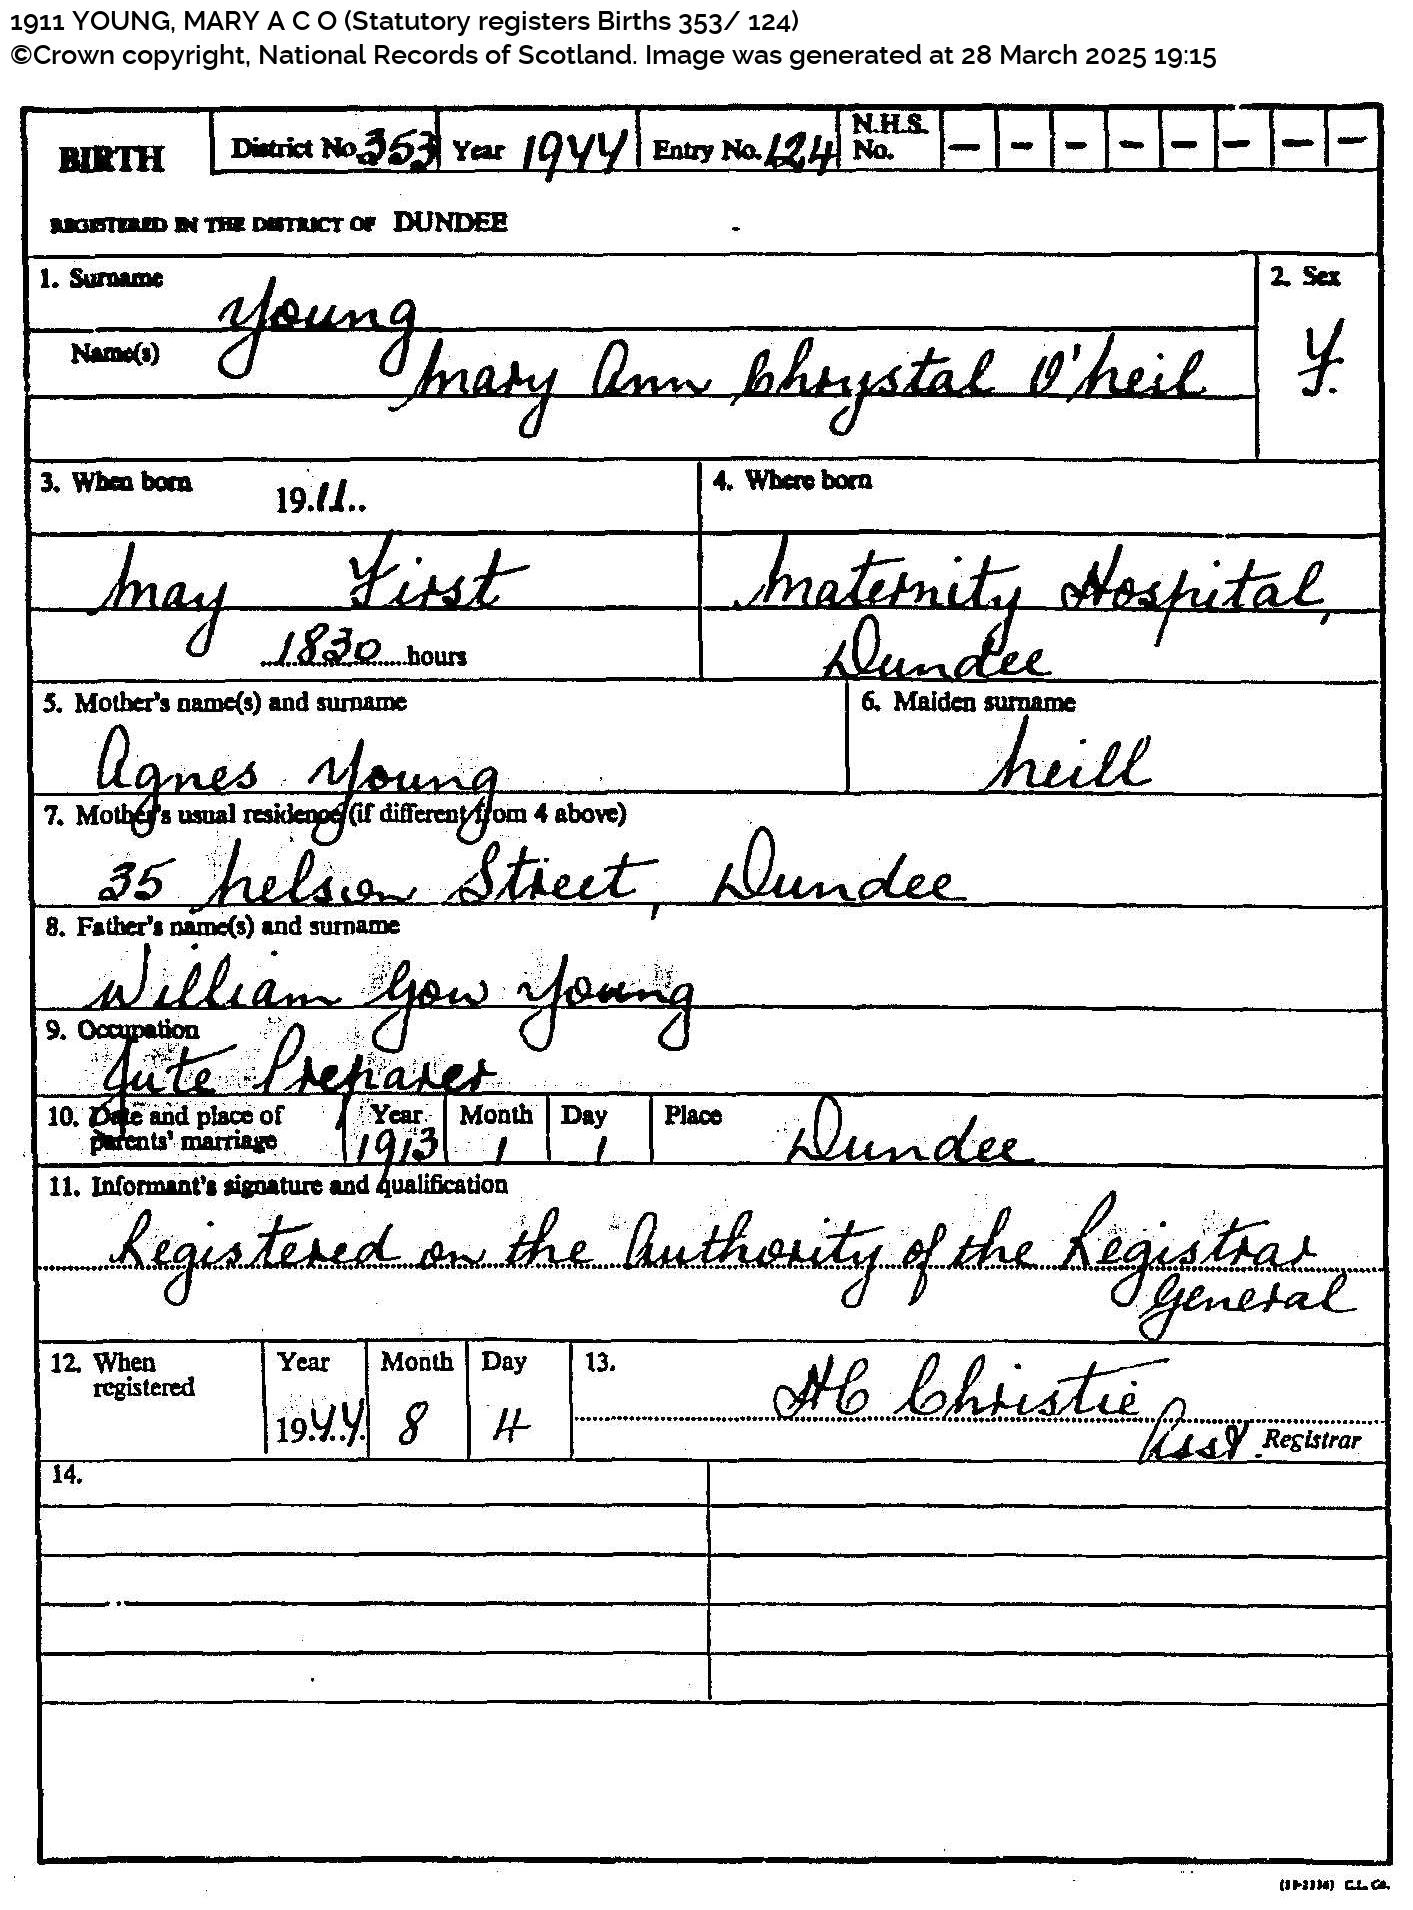 1911 YOUNG, MARY A C O (Statutory registers Births 353/ 124)
©Crown copyright, National Records of Scotland. Image was generated at 28 March 2025 19:15
BIRTH District No. 353 Year 1944 Entry No. 124 N.H.S. No. – – – – – – – –
REGISTERED IN THE DISTRICT OF DUNDEE
1. Surname 2. Sex
Young F.
Name(s) Mary Ann Chrystal O'Neil
3. When born 19.11.. 4. Where born
May First Maternity Hospital,
1830 hours Dundee
5. Mother's name(s) and surname 6. Maiden surname
Agnes Young Neill
7. Mother's usual residence (if different from 4 above)
35 Nelson Street, Dundee
8. Father's name(s) and surname
William Gow Young
9. Occupation
Jute Preparer
10. Date and place of Year Month Day Place Dundee
parents' marriage 1913 1 1
11. Informant's signature and qualification
Registered on the Authority of the Registrar
General
12. When Year Month Day 13. HC Christie
registered 1944 8 4 Asst. Registrar
14.
(31-2336) C.L. Co.